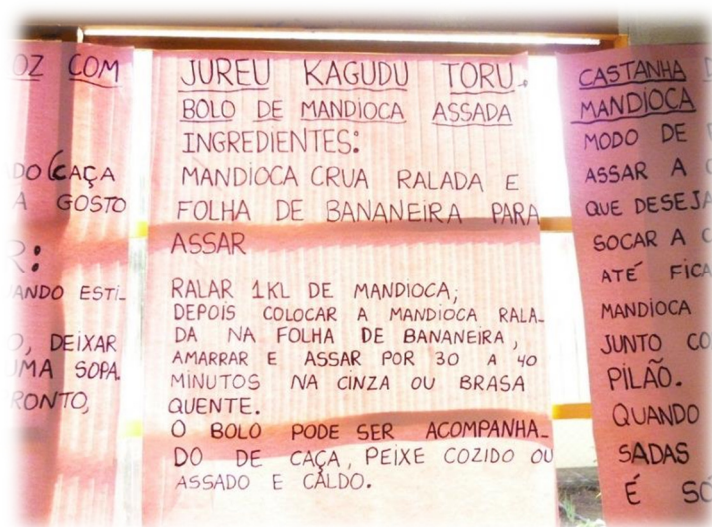 OZ COM
CAÇA
A GOSTO
R:
ANDO ESTI_
O, DEIXAR
UMA SOPA.
RONTO,
JUREU KAGUDU TORU.
BOLO DE MANDIOCA ASSADA
INGREDIENTES:
MANDIOCA CRUA RALADA E
FOLHA DE BANANEIRA PARA
ASSAR
RALAR 1KL DE MANDIOCA;
DEPOIS COLOCAR A MANDIOCA RALA_
DA NA FOLHA DE BANANEIRA,
AMARRAR E ASSAR POR 30 A 40
MINUTOS NA CINZA OU BRASA
QUENTE.
O BOLO PODE SER ACOMPANHA_
DO DE CAÇA, PEIXE COZIDO OU
ASSADO E CALDO.
CASTANHA
MANDIOCA
MODO DE
ASSAR A
QUE DESEJA
SOCAR A
ATÉ FICA
MANDIOCA
JUNTO CO
PILÃO.
QUANDO
SADAS
É SÓ